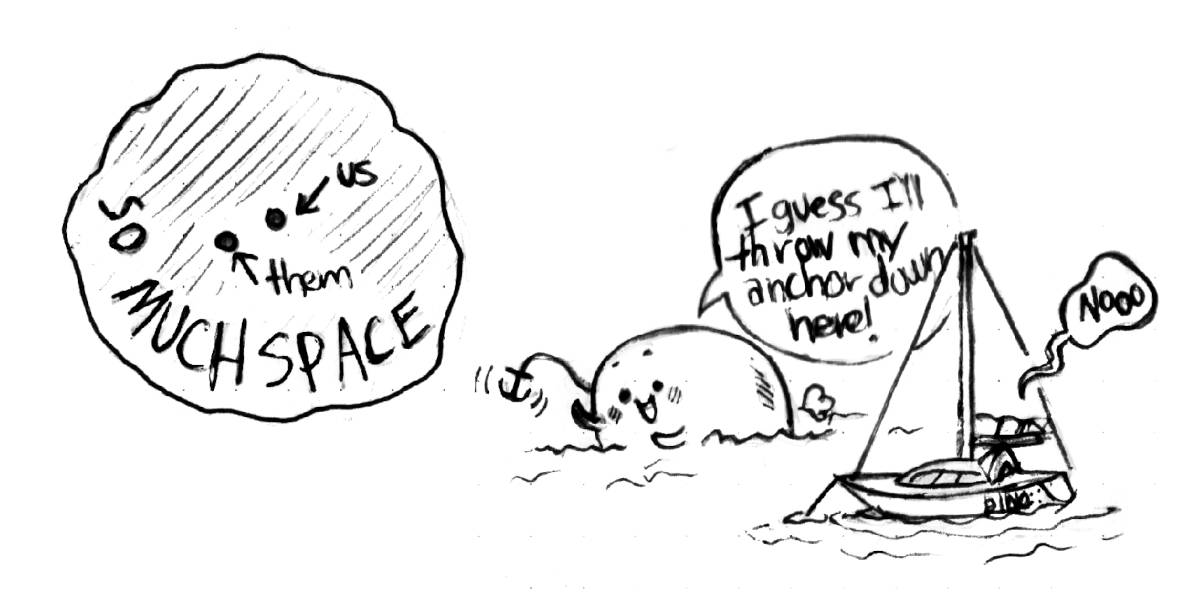 us
them
SO
MUCH SPACE
I guess I'll
throw my
anchor down
here!
NOOO
PINO